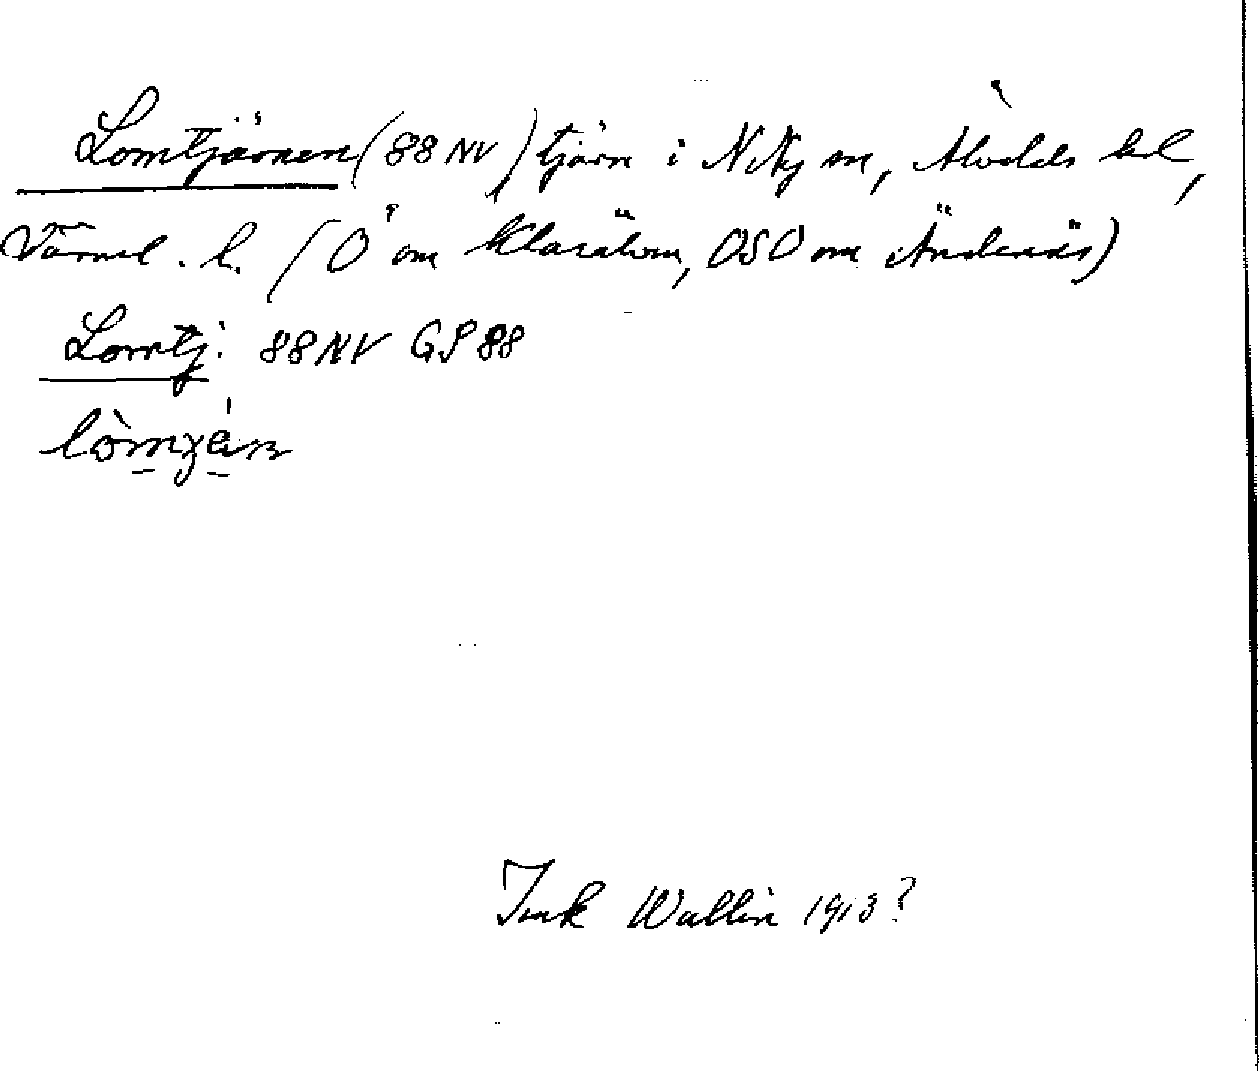 Lomtjärnen (88 NV) tjärn i N Ny sn, Älvdals hd,
Värml. l. (O om Klarälven, OSO om Ändenäs)
Lomtj. 88 NV GS 88
Wallin 1913?